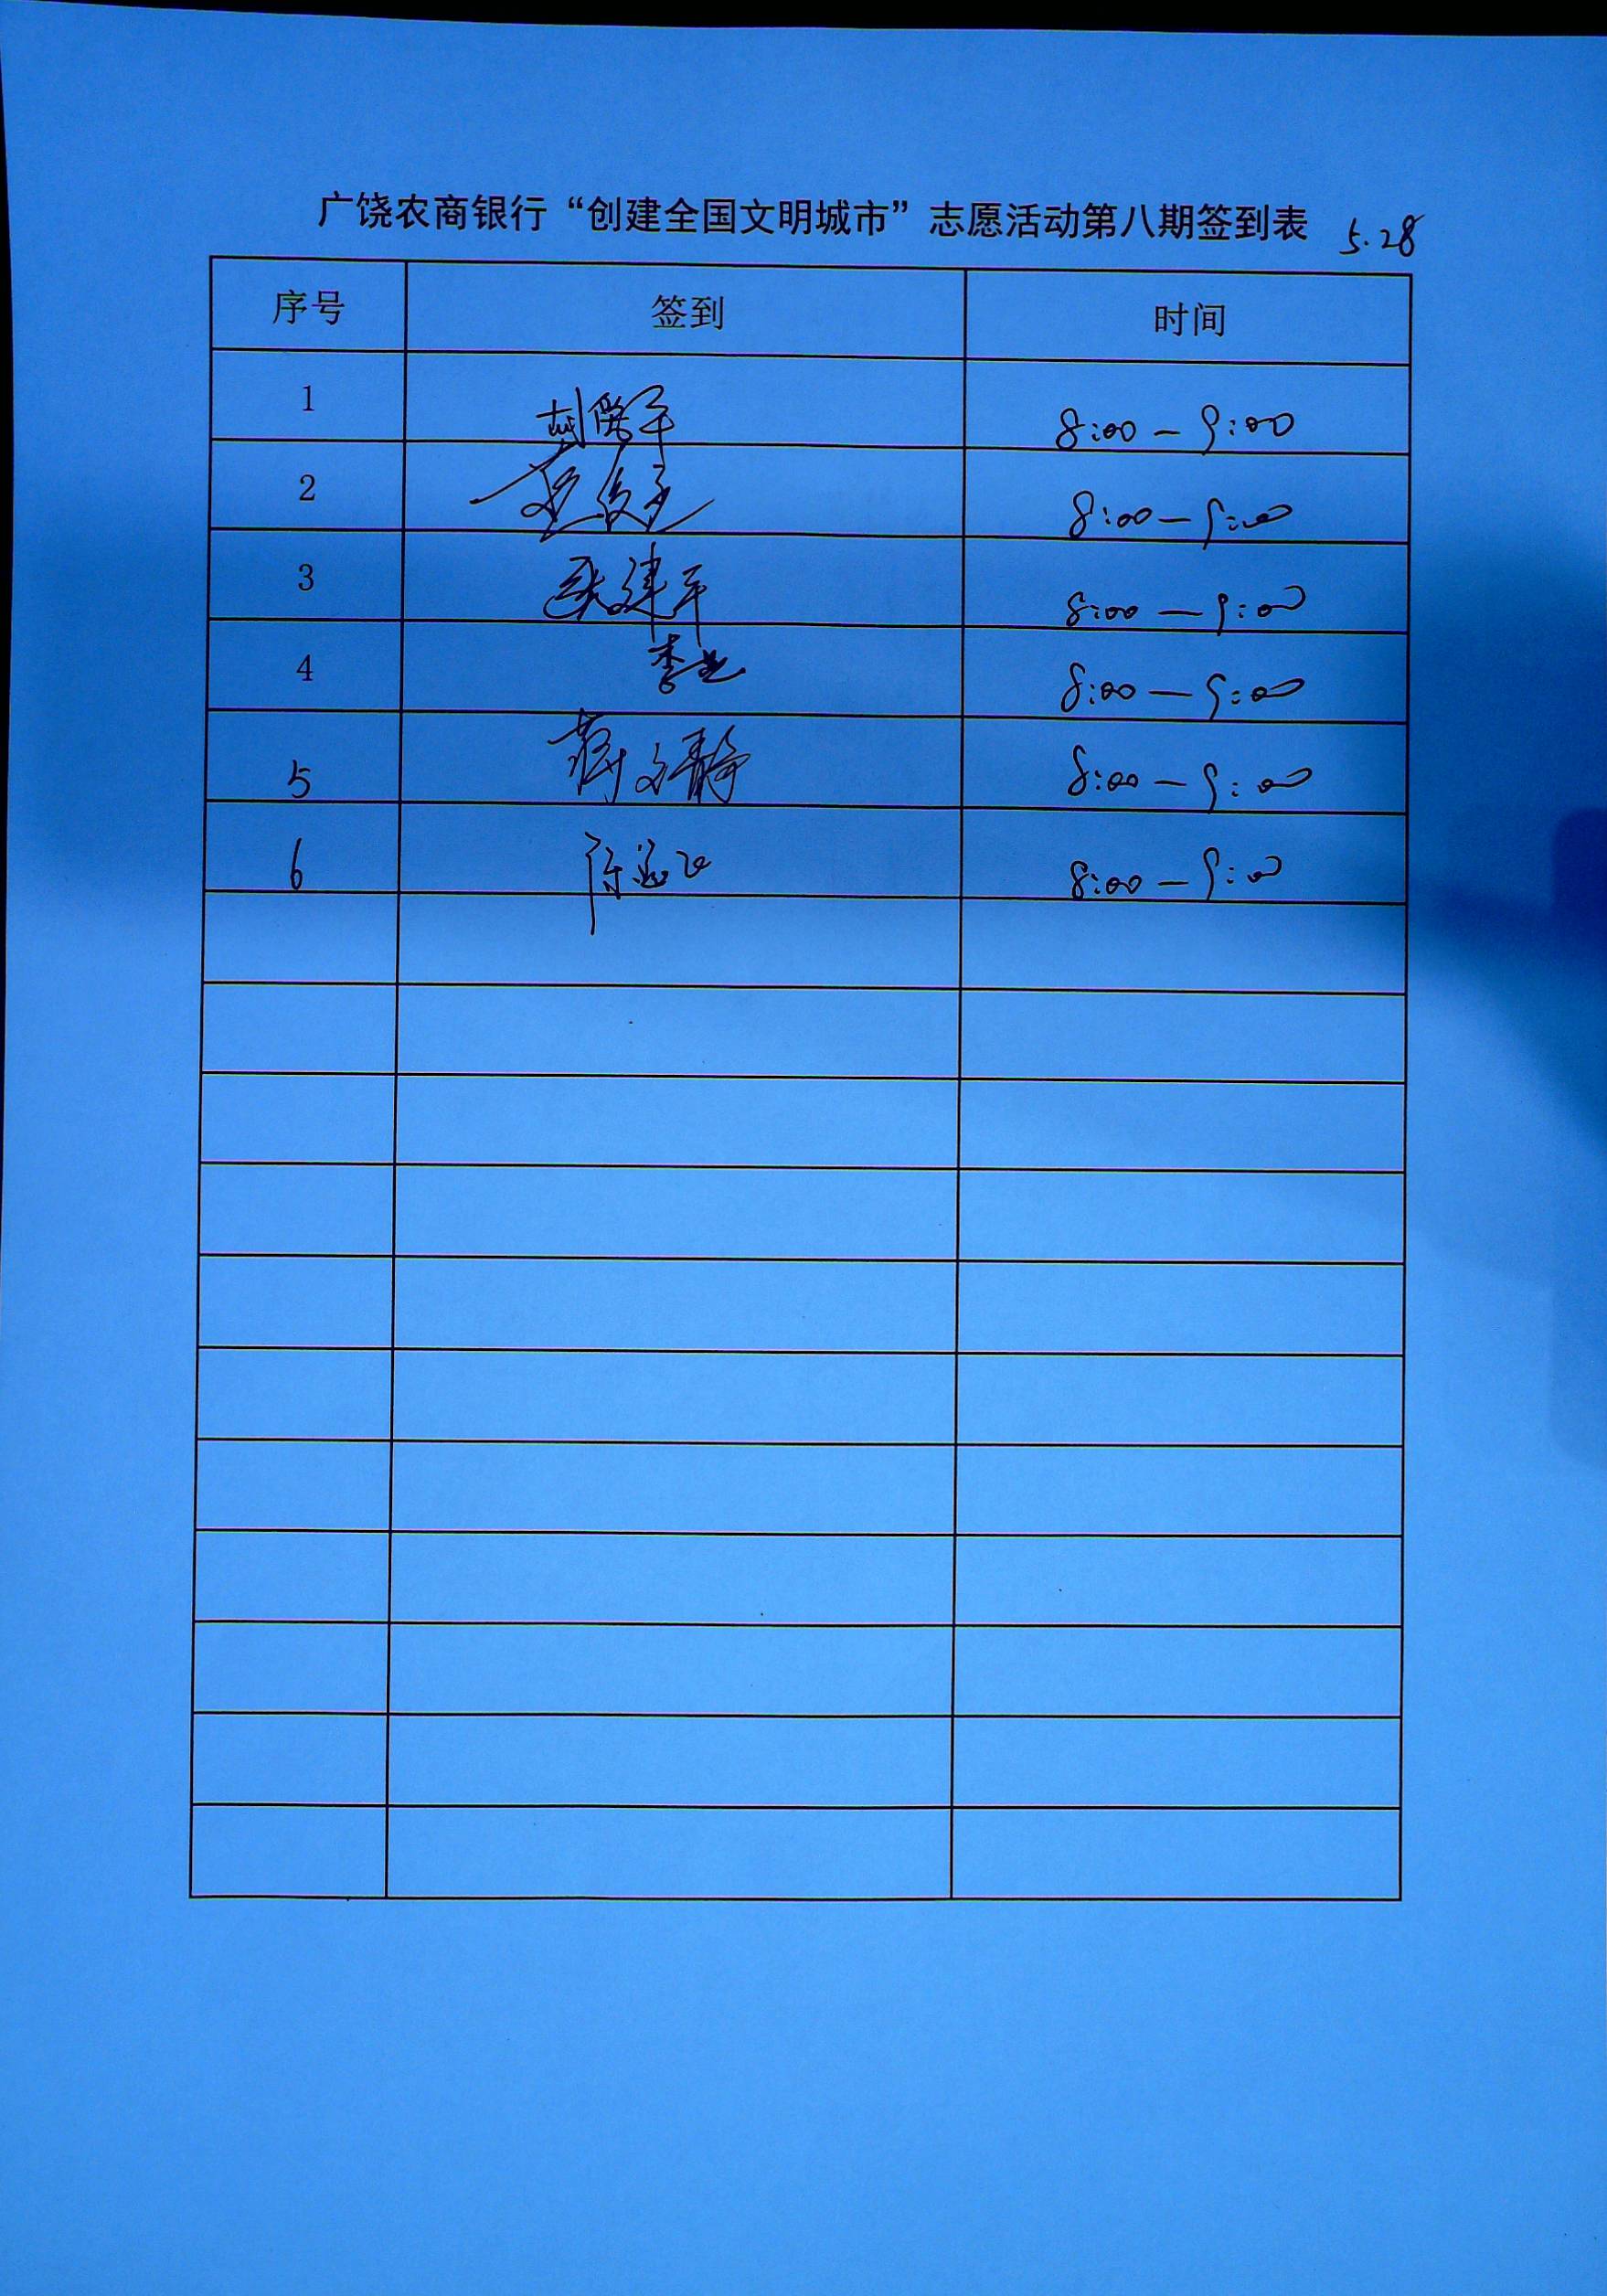 广饶农商银行“创建全国文明城市”志愿活动第八期签到表 5.28
序号 签到 时间
1 8:00 — 9:00
2 8:00 — 9:00
3 建平 8:00 — 9:00
4 李 8:00 — 9:00
5 蒋文静 8:00 — 9:00
6 陈 8:00 — 9:00